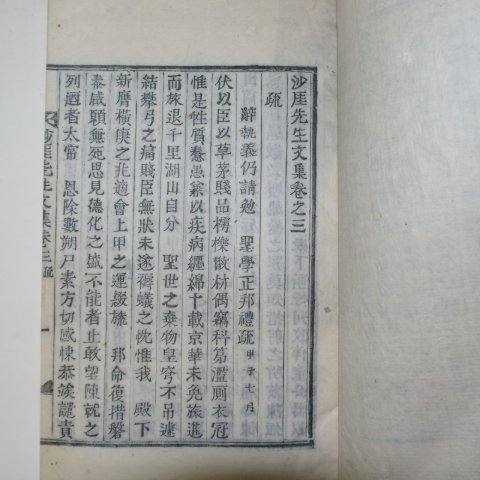 沙厓先生文集卷之三
疏
辭執義仍請勉 聖學正邦禮疏 甲子七月
伏以臣以草茅賤品樗櫟散材偶竊科第濫厠衣冠
惟是性質惷愚第以疾病纏綿十載京華未免旅進
而旅退千里湖山自分 聖世之棄物皇穹不吊遽
結攀弓之痛賤臣無狀未遂褥蟻之忱惟我 殿下
新膺橫庚之兆適會上甲之運綴旒 邦命復措磐
泰咸願無死思見德化之盛不能者止敢望陳就之
列迺者太常 恩除數朔尸素方切感悚忝竢譴責
沙厓先生文集卷三 疏 一